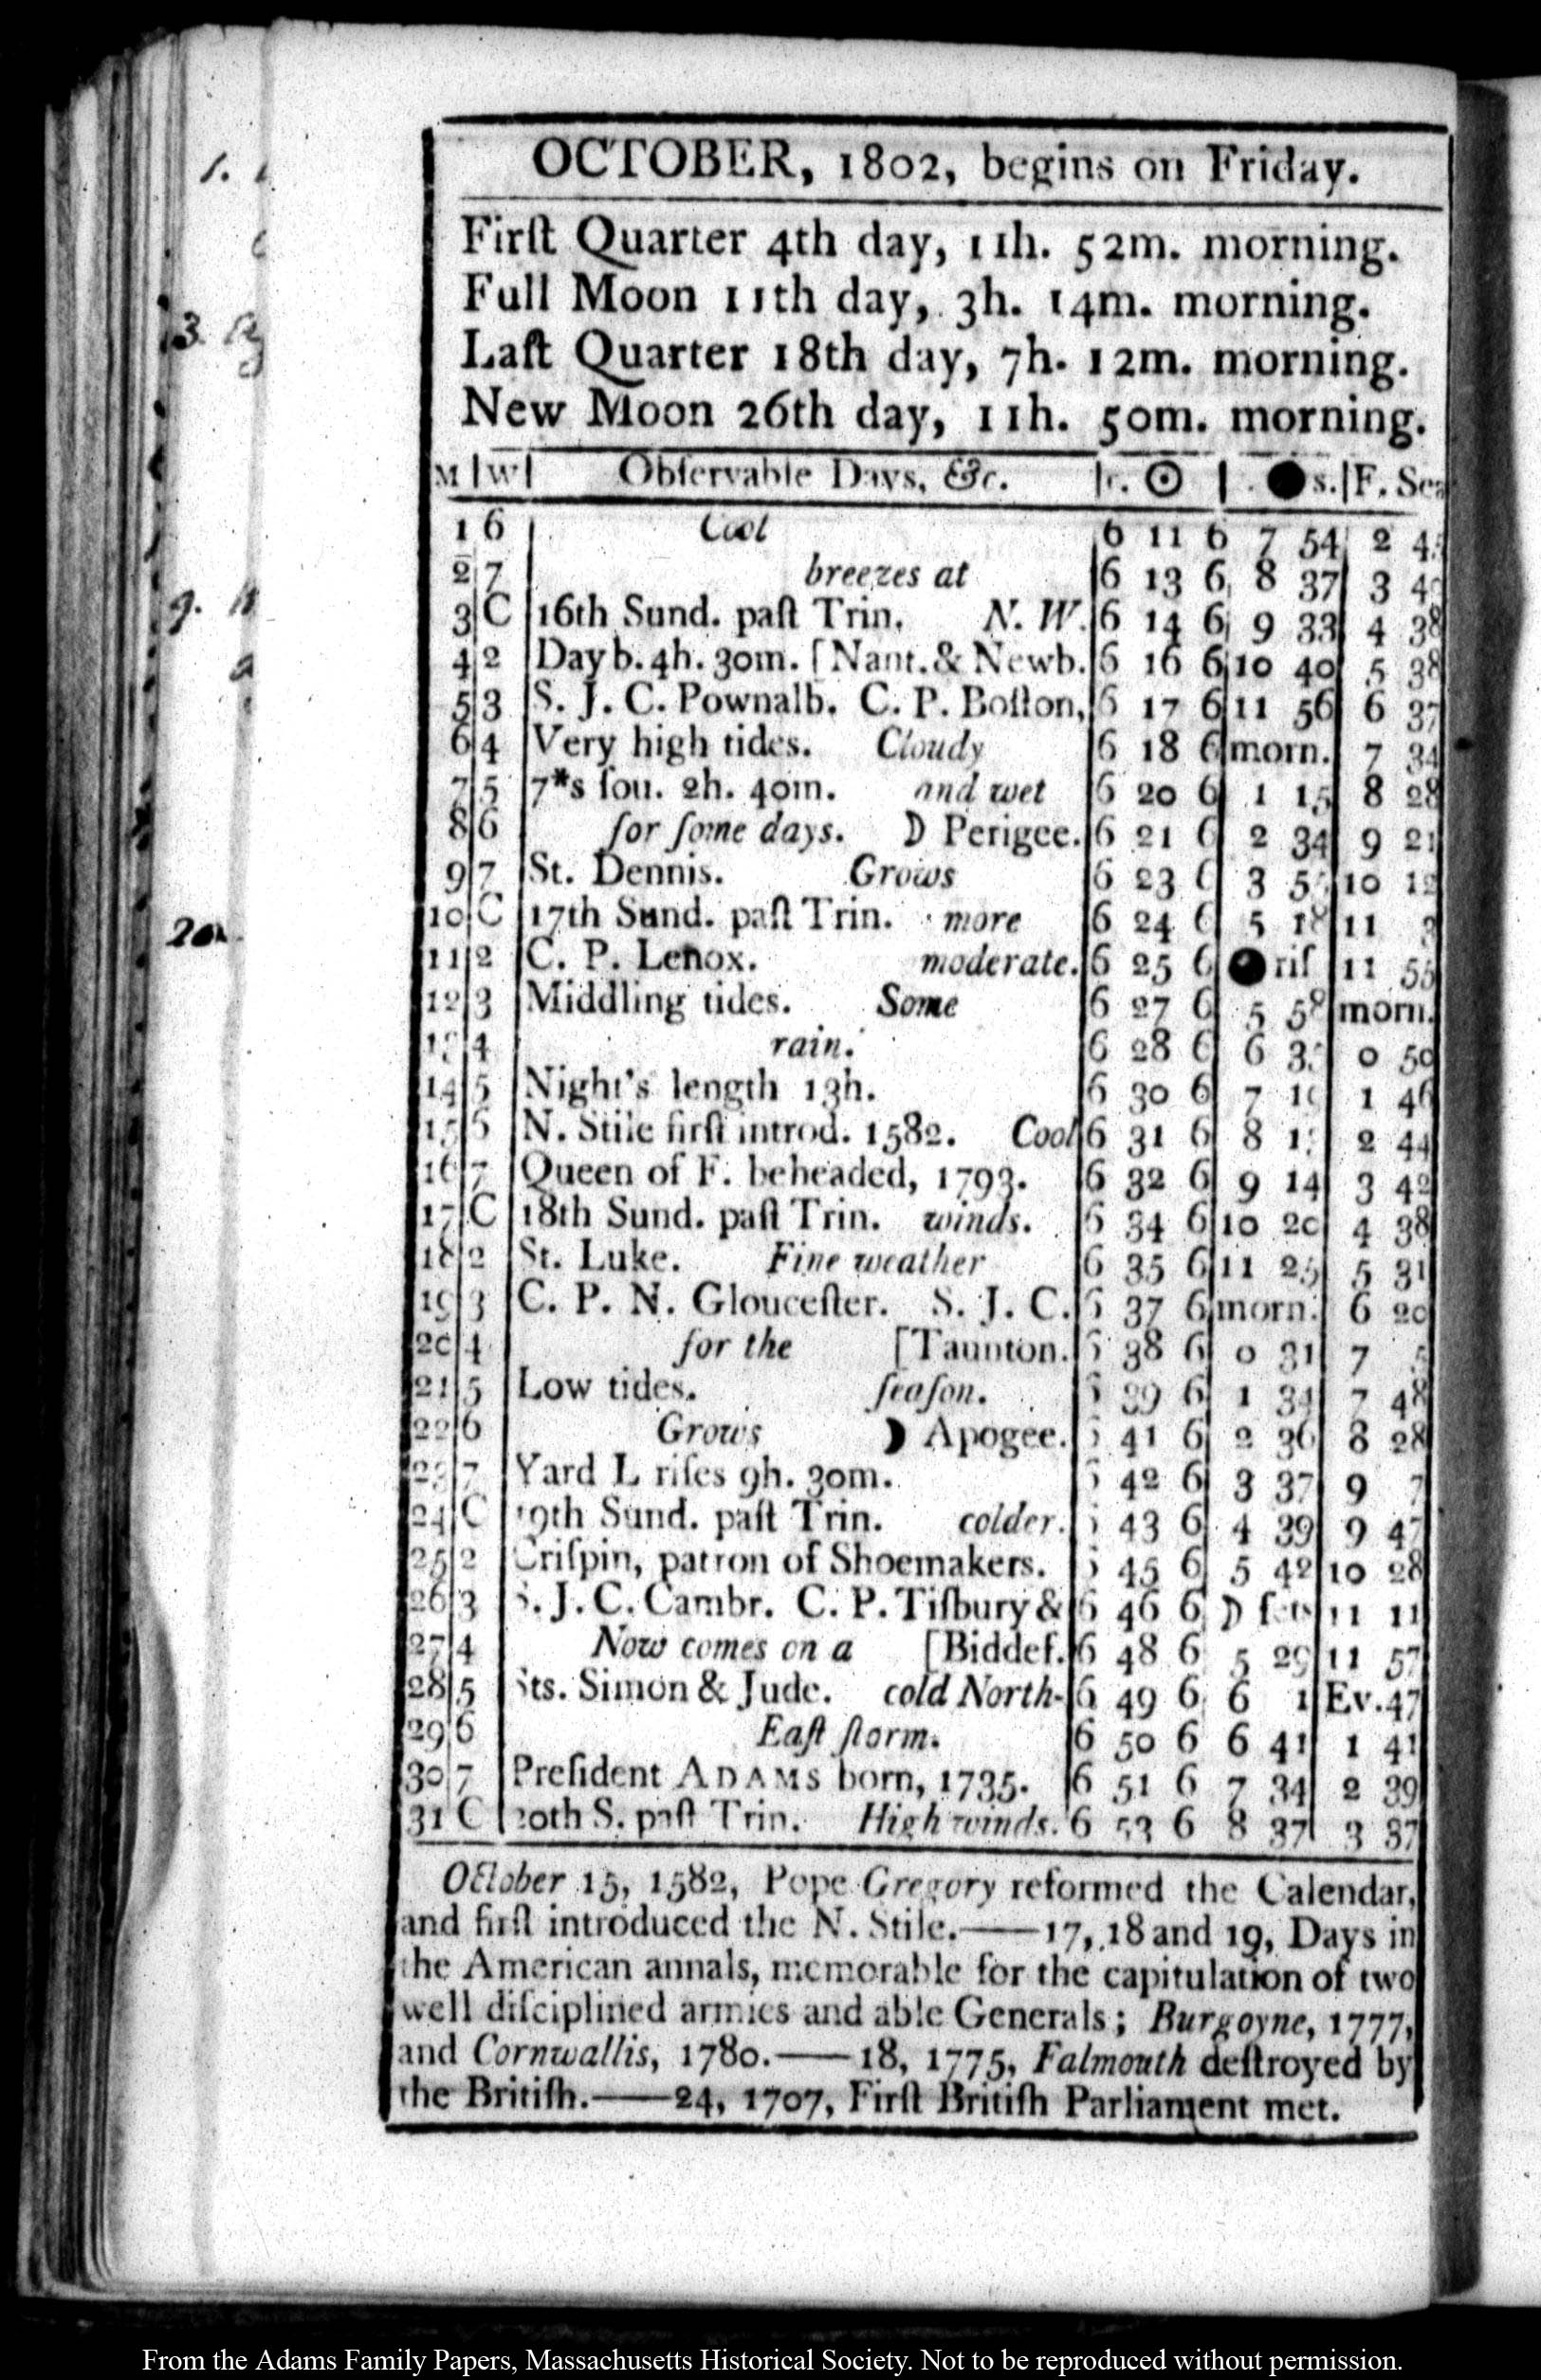 OCTOBER, 1802, begins on Friday.
Firſt Quarter 4th day, 11h. 52m. morning.
Full Moon 11th day, 3h. 14m. morning.
Laſt Quarter 18th day, 7h. 12m. morning.
New Moon 26th day, 11h. 50m. morning.
M|W| Obſervable Days, &c. |r. ☉ | ●s.|F. Sea
1 6 | Cool |6 11 6 7 54 2
2|7 breezes at |6 13 6 8 37 3
3|C |16th Sund. paſt Trin. N. W.|6 14 6 9 33 4 38
4|2 |Day b. 4h. 30m. [Nant. & Newb.|6 16 6|10 40 5 38
5|3 |S. J. C. Pownalb. C. P. Boſton,|6 17 6|11 56 6 37
6|4 |Very high tides. Cloudy |6 18 6|morn. 7 34
7|5 |7*s ſou. 2h. 40m. and wet |6 20 6 1 15 8 28
8|6 for ſome days. ☽ Perigee.|6 21 6 2 34 9 21
9|7 |St. Dennis. Grows |6 23 6 3 10 12
10|C |17th Sund. paſt Trin. more |6 24 6 5 18 11
11|2 |C. P. Lenox. moderate.|6 25 6|● riſ 11 55
12|3 |Middling tides. Some |6 27 6 5 58|morn.
13|4 rain. |6 28 6 6 0 50
14|5 |Night's length 13h. |6 30 6 7 1 46
15|6 |N. Stile firſt introd. 1582. Cool|6 31 6 8 2 44
16|7 |Queen of F. beheaded, 1793. |6 32 6 9 14 3 42
17|C |18th Sund. paſt Trin. winds. |6 34 6|10 20 4 38
18|2 |St. Luke. Fine weather |6 35 6|11 25 5 31
19|3 |C. P. N. Glouceſter. S. J. C.|6 37 6|morn. 6 20
20|4 for the [Taunton.|6 38 6 0 31 7
21|5 |Low tides. ſeaſon. |6 39 6 1 34 7 48
22|6 Grows ☽ Apogee.|6 41 6 2 36 8 28
23|7 |Yard L riſes 9h. 30m. |6 42 6 3 37 9 7
24|C |19th Sund. paſt Trin. colder.|6 43 6 4 39 9 47
25|2 |Criſpin, patron of Shoemakers. |6 45 6 5 42|10 28
26|3 |S. J. C. Cambr. C. P. Tiſbury &|6 46 6 ☽ ſets|11 11
27|4 Now comes on a [Biddef.|6 48 6 5 29|11 57
28|5 |Sts. Simon & Jude. cold North-|6 49 6 6 1|Ev.47
29|6 Eaſt ſtorm. |6 50 6 6 41 1 41
30|7 |Preſident ADAMS born, 1735. |6 51 6 7 34 2 39
31 C |20th S. paſt Trin. High winds.|6 53 6 8 37 3 37
October 15, 1582, Pope Gregory reformed the Calendar,
and firſt introduced the N. Stile.——17, 18 and 19, Days in
the American annals, memorable for the capitulation of two
well diſciplined armies and able Generals; Burgoyne, 1777,
and Cornwallis, 1780.——18, 1775, Falmouth deſtroyed by
the Britiſh.——24, 1707, Firſt Britiſh Parliament met.
1.
3.
9.
20.
From the Adams Family Papers, Massachusetts Historical Society. Not to be reproduced without permission.